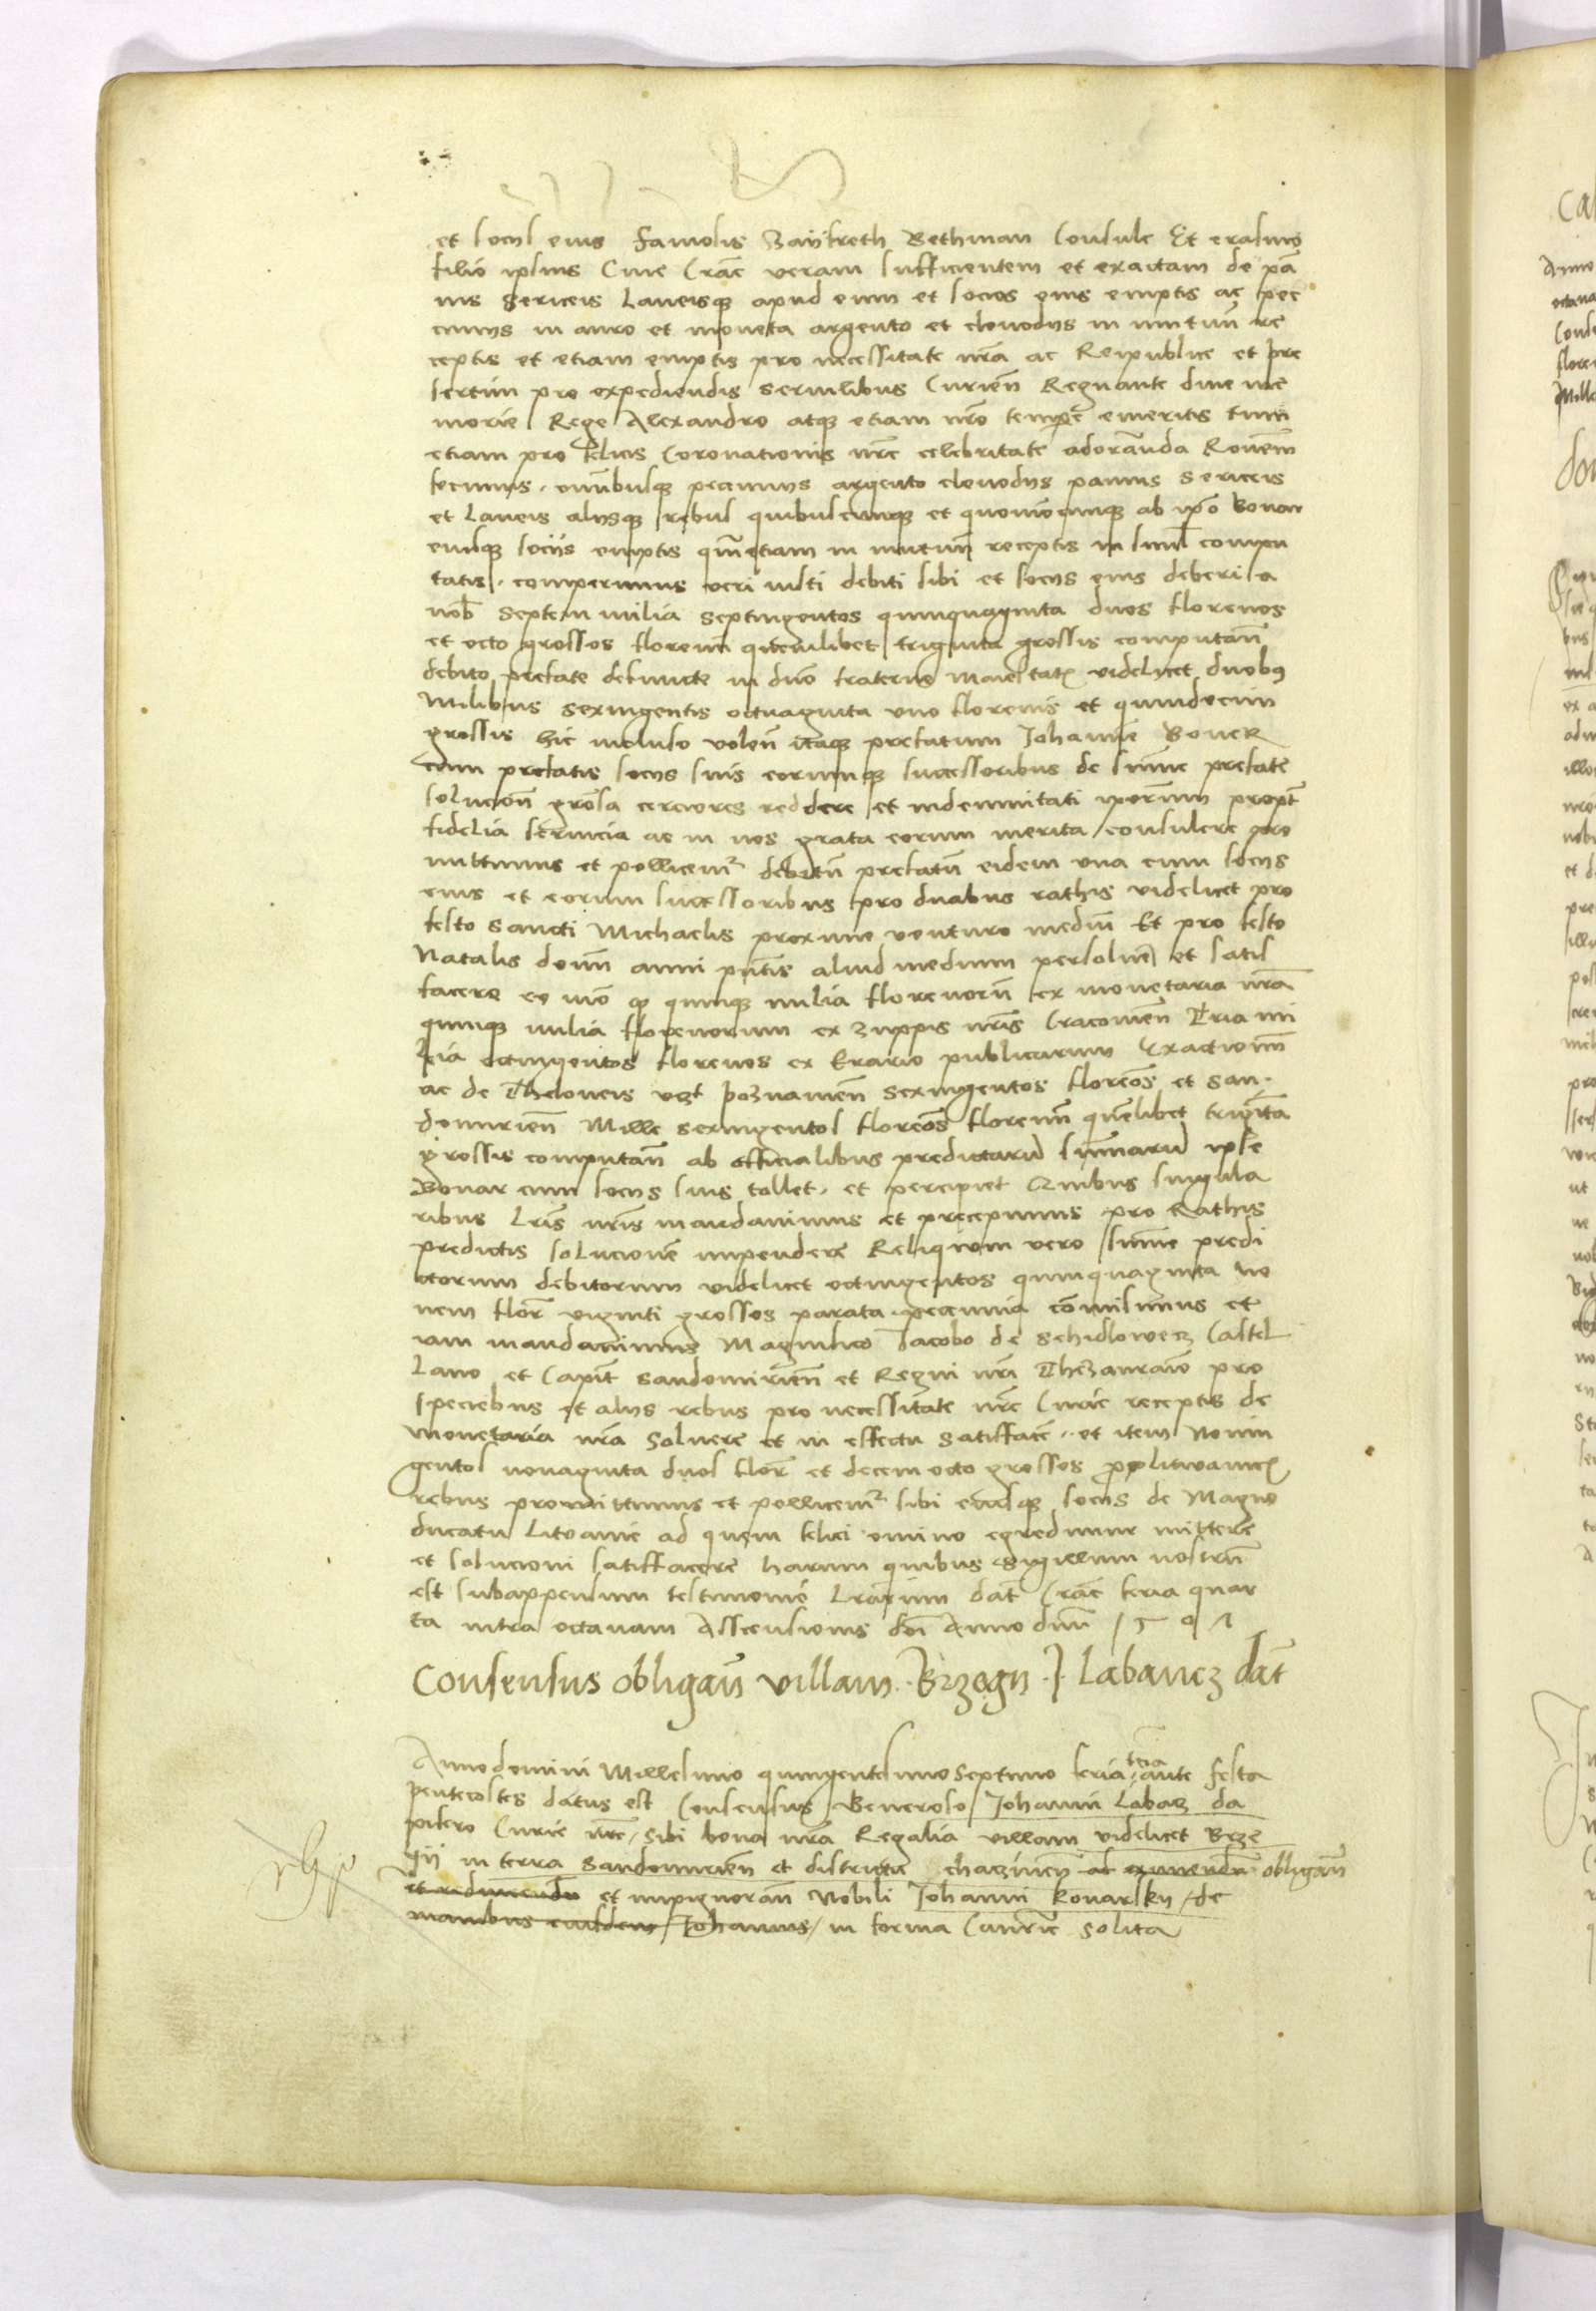 et socijs eius Famosis Zayfreth Bethman Consule Et erasmo
filio ipsius Ciue Crac̄ veram sufficientem et exactam de pa͞
nis Sericeis Laneisq̨ apud eum et socios eius emptis ac pec
cunijs in auro et moneta argento et clenodijs in mutuu͞ re
ceptis et etiam emptis pro necessitate nr͞a ac Reipublice et pre
sertim pro expediendis seruilibus Curien͞ Regnante diue me
morie Rege Alexandro atq̨ etiam nr͞o tempe͞ emeritis tum
etiam pro felicis Coronationis nr͞e celebritate adoranda
fecimus. omnibusq̨ pecunijs argento clenodijs pannis Sericeis
et Laneis alijsq̨ rebus quibuscumq̨ et quomo͞cumq̨ ab ip͞o Bonar
eiusq̨ socijs emptis qm͞etiam in mutuu͞ receptis in simul compu
tatis. comperimus veri iusti debiti sibi et socijs eius deberi a
nob͞ Septem milia septingentos quinquaginta duos florenos
et octo grossos florenu͞ quemlibet triginta grossis computan͞
debito prefate defuncte in dn͞o fraterne maiestatis videlycet duobus
Milibus sexingentis octuaginta vno florenis et quindecim
grossis hic incluso volen͞ itaq̨ prefatum Johanne͞ Boner
cum prefatis socijs suis eorumq̨ successoribus de summe prefate
solucion͞ gro͞sa cerciores reddere et indemnitati ipo͞rum propt͞
fidelia seruicia ac in nos grata eorum merita consulere pro
mittimus et pollicem͞ʳ debitu͞ prefatu͞ eidem vna cum socijs
eius et eorum successoribus pro duabus rathis videlicet pro
festo Sancti Michaelis proxime venturo mediu͞ Et pro festo
Natalis domi͞ anni pn͞tis aliud medium persoluer͞ et satis
facere eo mo͞ q̨ quinq̨ milia florenoru͞ ex monetaria nr͞a
quinq̨ milia florenorum ex zuppis nr͞is Cracouien͞ Tria mi
lia octingentos florenos ex Erario publicarum Exactionu͞
ac de Theloneis vzt Poznanien͞ Sexingentos floreo͞s et San.
domirien͞ Mille sexingentos floreo͞s florenu͞ que͞libet triginta
grossis computan͞ ab officialibus predictaru͞ summaru͞ ipse
Bonar cum socijs suis tollet. et percipiet Quibus singula
ribus Lr͞is nr͞is mandauimus et precepimus pro Rathis
predictis solucione͞ impendere Reliquum vero summe predi
ctorum debitorum videlicet octingentos quinquaginta no
uem flor͞ viginti grossos parata peccunia comisimus et
iam mandauimus Magnifico Jacobo de Schidlowez Castel
Lano et Capit͞ Sandomirien͞ et Regni nr͞i Thezaurario pro
speciebus et alijs rebus pro necessitate nr͞e Curie receptis de
monetaria nr͞a Soluere et in effectu satisfacer͞. et item Nonin
gentos nonaginta duos flor͞ et decemocto grossos
rebus promittimus et pollicem͞ʳ sibi eiusq̨ socijs de Magno
ducatu Litvanie ad quem felici omine egredimur mittere
et solucioni satisfacere harum quibus Sigillum nostru͞
est subappensum testimonio Lr͞arum dat͞ Crac͞ feria quar
ta infra octauam Assensionis do͞i Anno dn͞i 1507
Consensus obligan͞ villam. Brzegy. J. Labancz dat͞
Anno domini Millesimo quingentesimo Septimo feria tercia ante festa
Pentecostes datus est Consensus Generoso Johanni Labacz da
pifero Curie nr͞e, sibi bona nr͞a Regalia villam videlicet Brze
gij in terra Sandomirien͞ et districtu chaczinen͞ ad eximendu͞ obligan͞
et redimendu͞ et inpignoran͞ Nobili Johanni Konarsky, de
manibus eiusdem Johannis, in forma Cancellarie solita